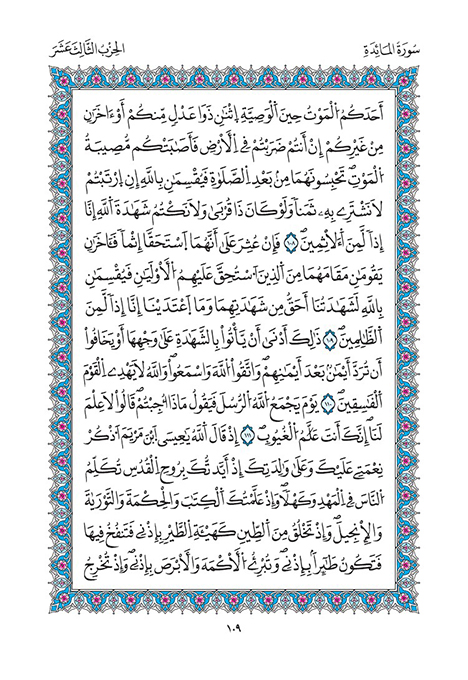 سُورَةُ المَائِدَةِ
الحِزْبُ الثَّالِثَ عَشَرَ
أَحَدَكُمُ الْمَوْتُ حِينَ الْوَصِيَّةِ اِثْنَٰنِ ذَوَا عَدْلٍ مِّنكُمْ أَوَ اٰخَرَٰنِ
مِنْ غَيْرِكُمْ إِنْ أَنتُمْ ضَرَبْتُمْ فِے الْأَرْضِ فَأَصَٰبَتْكُم مُّصِيبَةُ
الْمَوْتِ تَحْبِسُونَهُمَا مِنۢ بَعْدِ الصَّلَوٰةِ فَيُقْسِمَٰنِ بِاللَّهِ إِنِ اِرْتَبْتُمْ
لَا نَشْتَرِے بِهِۦ ثَمَناٗ وَلَوْ كَانَ ذَا قُرْبَىٰ وَلَا نَكْتُمُ شَهَٰدَةَ اَللَّهِ إِنَّا
إِذاٗ لَّمِنَ اَلْأٓثِمِينَ ١٠٨ فَإِنْ عُثِرَ عَلَىٰٓ أَنَّهُمَا اَسْتَحَقَّا إِثْماٗ فَـَٔاخَرَٰنِ
يَقُومَٰنِ مَقَامَهُمَا مِنَ اَلذِينَ اَسْتُحِقَّ عَلَيْهِمُ اُلْأَوْلَيَٰنِ فَيُقْسِمَٰنِ
بِاللَّهِ لَشَهَٰدَتُنَا أَحَقُّ مِن شَهَٰدَتِهِمَا وَمَا اَعْتَدَيْنَا إِنَّا إِذاٗ لَّمِنَ
اَلظَّٰلِمِينَ ١٠٩ ذَٰلِكَ أَدْنَىٰ أَنْ يَّأْتُوا۟ بِالشَّهَٰدَةِ عَلَىٰ وَجْهِهَا أَوْ يَخَافُوٓا۟
أَن تُرَدَّ أَيْمَٰنُۢ بَعْدَ أَيْمَٰنِهِمْ وَاتَّقُوا۟ اُللَّهَ وَاسْمَعُوا۟ وَاللَّهُ لَا يَهْدِے اِلْقَوْمَ
اَلْفَٰسِقِينَ ١١٠ يَوْمَ يَجْمَعُ اُللَّهُ اُلرُّسُلَ فَيَقُولُ مَاذَآ أُجِبْتُمْ قَالُوا۟ لَا عِلْمَ
لَنَآ إِنَّكَ أَنتَ عَلَّٰمُ اُلْغُيُوبِ ١١١ إِذْ قَالَ اَللَّهُ يَٰعِيسَى اَبْنَ مَرْيَمَ اَذْكُرْ
نِعْمَتِے عَلَيْكَ وَعَلَىٰ وَٰلِدَتِكَ إِذْ أَيَّدتُّكَ بِرُوحِ اِلْقُدُسِ تُكَلِّمُ
اُلنَّاسَ فِے اِلْمَهْدِ وَكَهْلاٗ وَإِذْ عَلَّمْتُكَ اَلْكِتَٰبَ وَالْحِكْمَةَ وَالتَّوْرَىٰةَ
وَالْإِنجِيلَ وَإِذْ تَخْلُقُ مِنَ اَلطِّينِ كَهَيْـَٔةِ اِلطَّيْرِ بِإِذْنِے فَتَنفُخُ فِيهَا
فَتَكُونُ طَٰٓئِراَۢ بِإِذْنِے وَتُبْرِئُ اُلْأَكْمَهَ وَالْأَبْرَصَ بِإِذْنِے وَإِذْ تُخْرِجُ
١٠٩